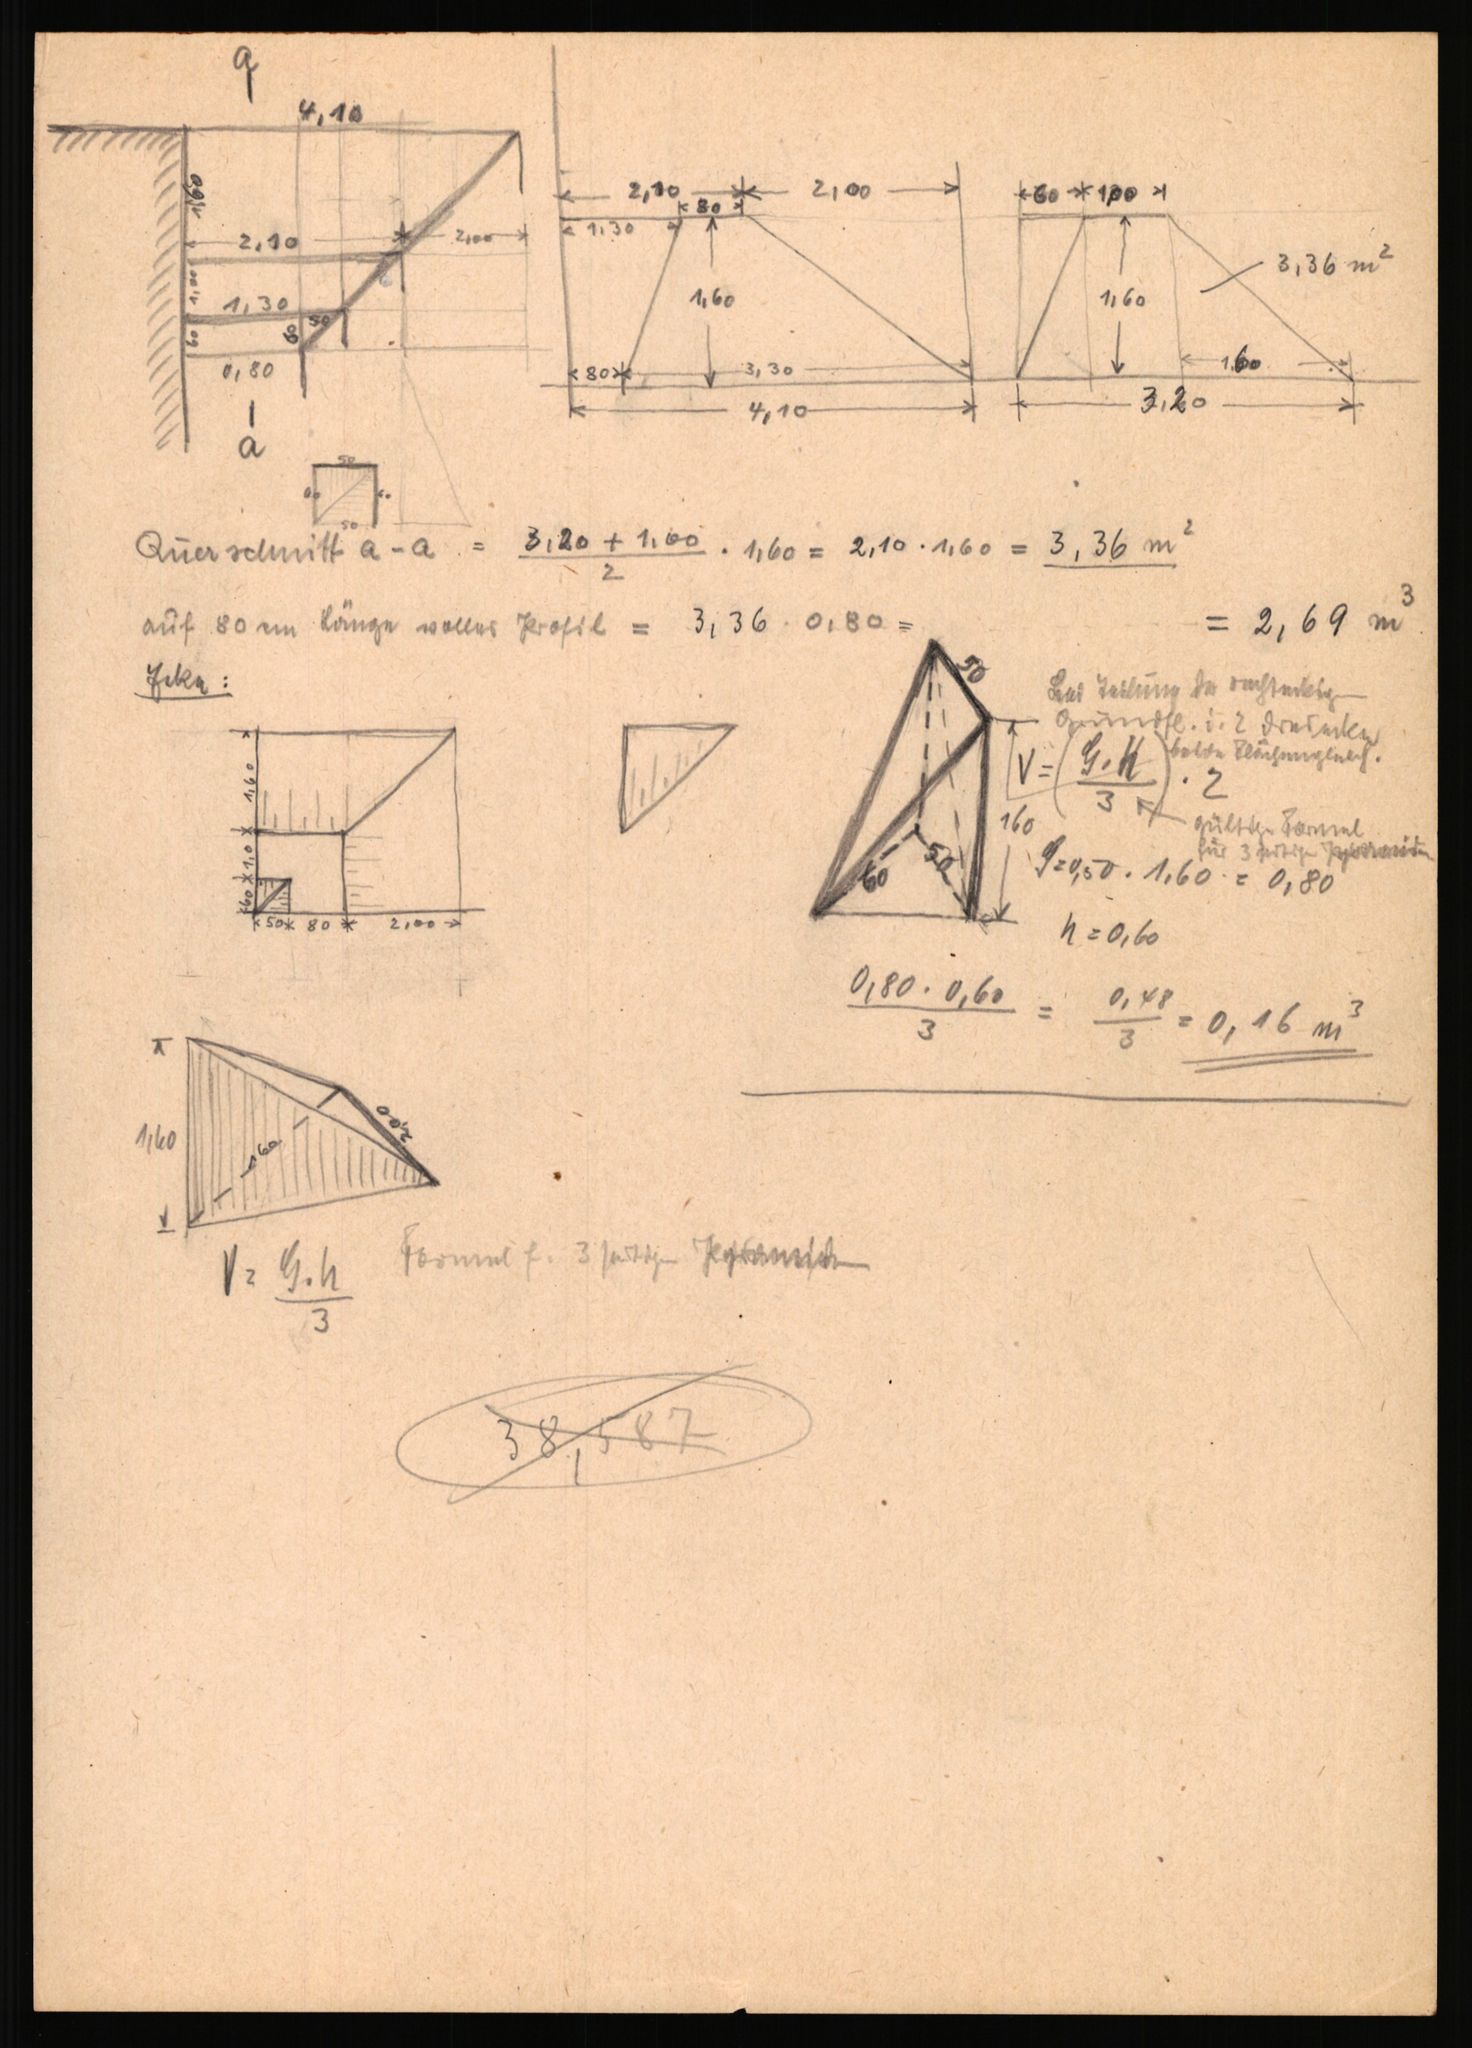 a
4,10
2,10
2,00
1,00
1,30
50
60
0,80
a
2,10
2,00
80
1,30
1,60
80
3,30
4,10
60
1,00
3,36 m²
1,60
1,60
3,20
50
50
Querschnitt a-a = (3,20 + 1,60)/2 · 1,60 = 2,10 · 1,60 = 3,36 m²
auf 80 cm Länge volles Profil = 3,36 · 0,80 = = 2,69 m³
Ecke:
1,60
1,0
60
50
80
2,00
50
60
50
160
Bei Teilung der rechteckigen
Grundfl. i. 2 Dreiecke
beide flächengleich.
V = (G·h/3) · 2
gültige Formel
für 3 seitige Pyramiden
G = 0,50 · 1,60 = 0,80
h = 0,60
(0,80 · 0,60)/3 = 0,48/3 = 0,16 m³
1,60
2,00
1,60
V = G·h/3
Formel f. 3 seitige Pyramiden
38,587